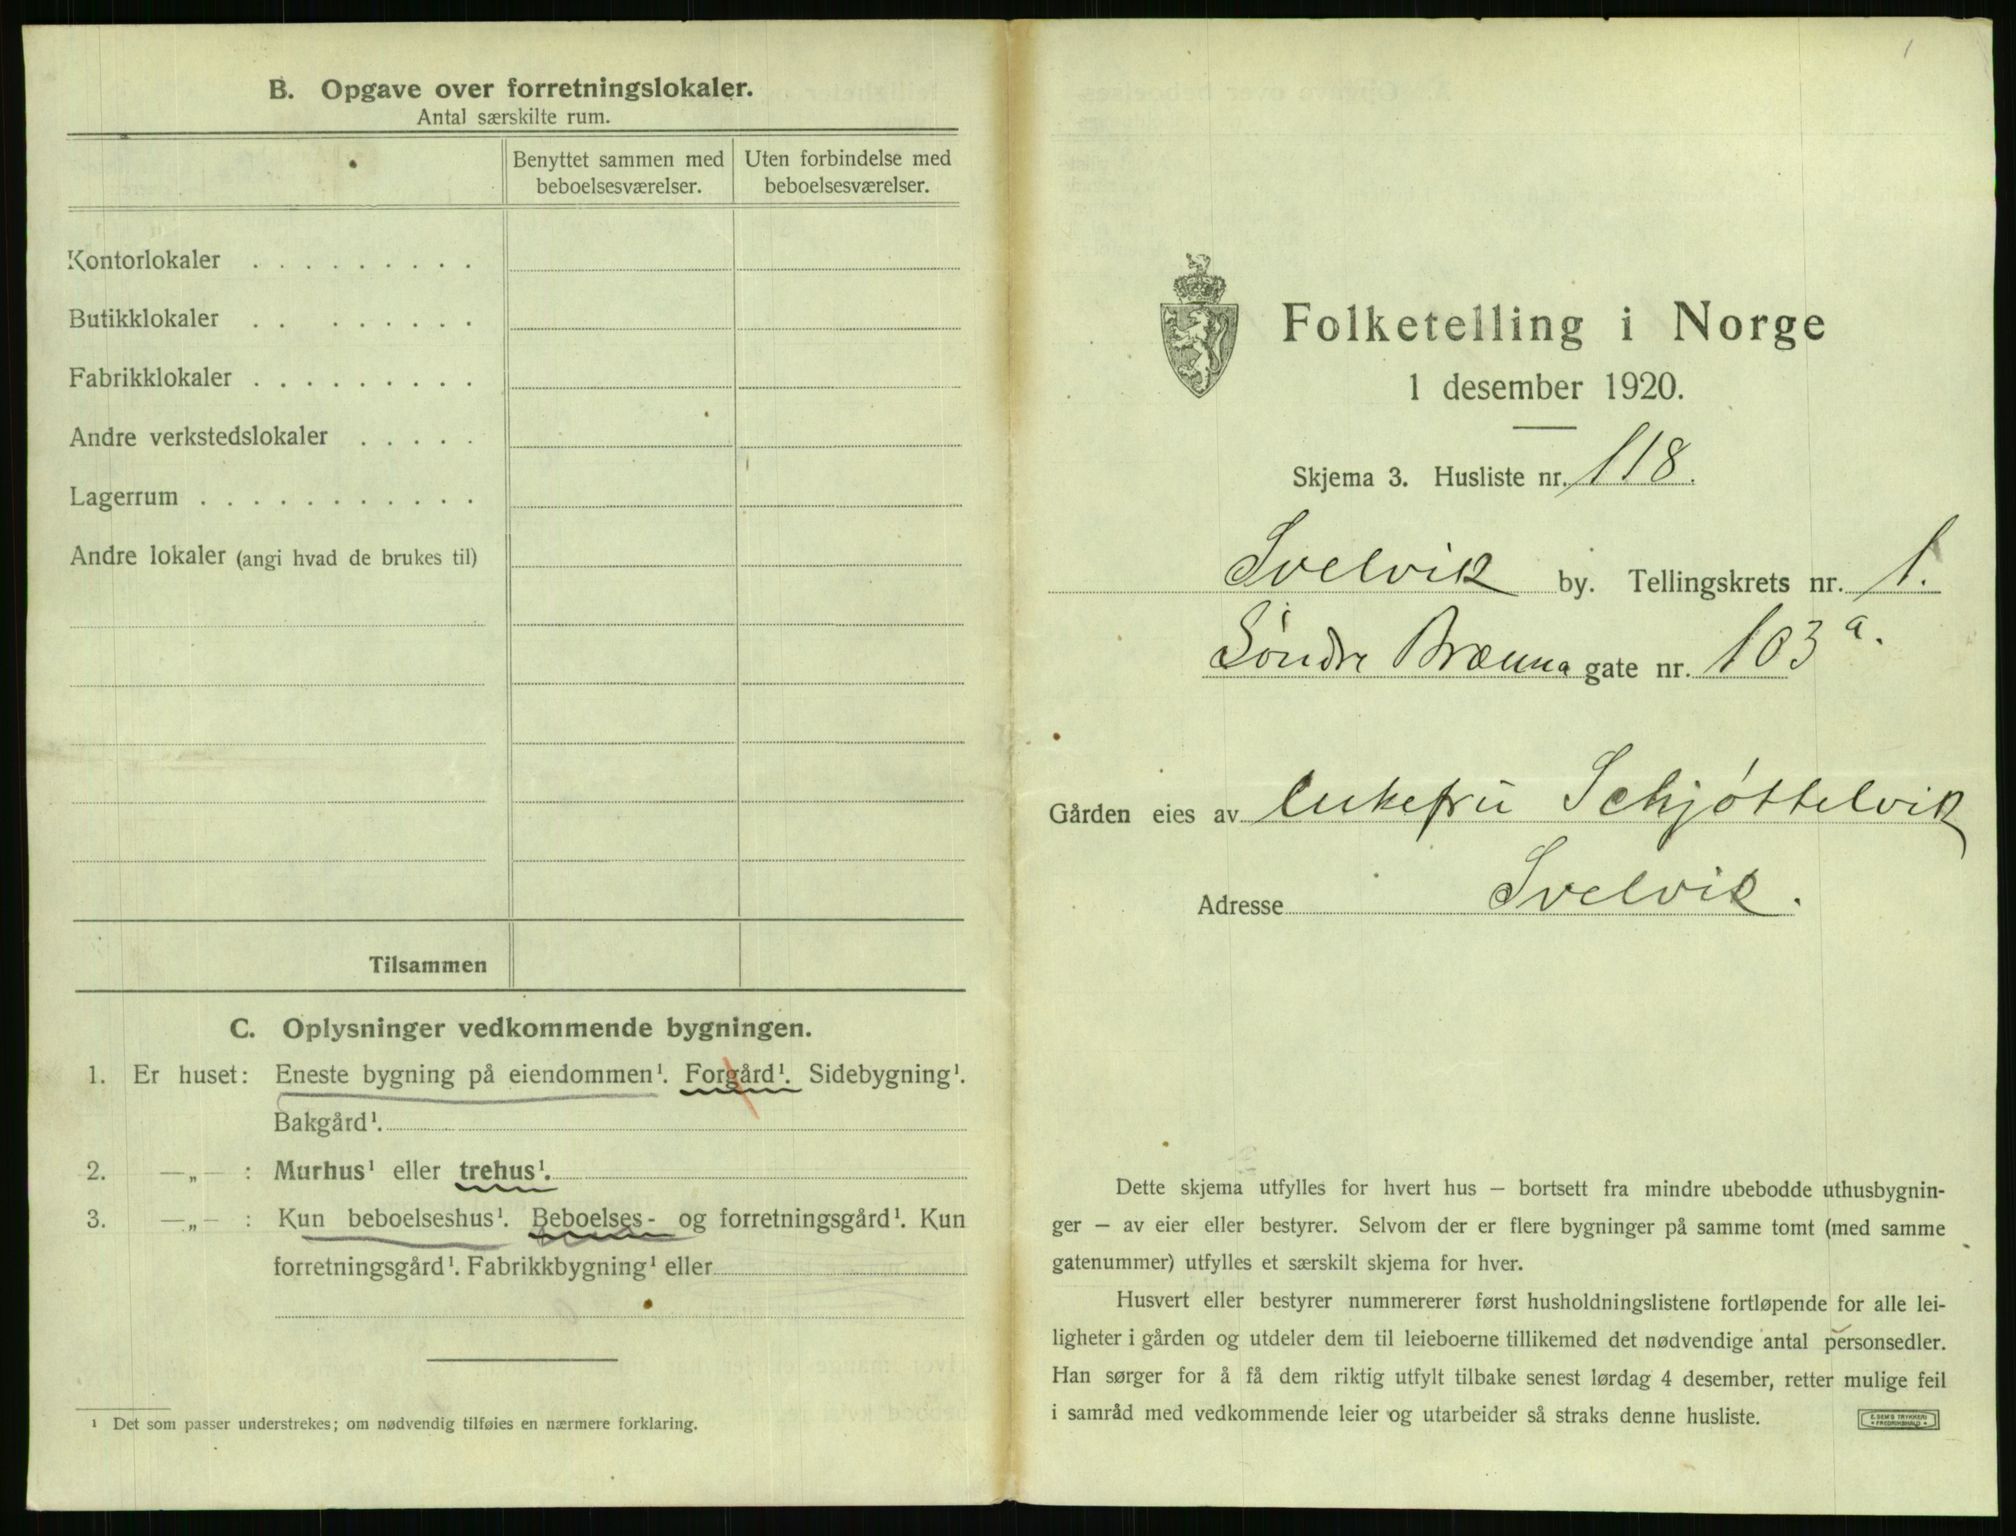 B. Opgave over forretningslokaler.
Antal særskilte rum.
Benyttet sammen med beboelsesværelser.
Uten forbindelse med beboelsesværelser.
Kontorlokaler . . . . . . . . .
Butikklokaler . . . . . . . .
Fabrikklokaler . . . . . . . . .
Andre verkstedslokaler . . . . .
Lagerrum . . . . . . . . . . .
Andre lokaler (angi hvad de brukes til)
Tilsammen
C. Oplysninger vedkommende bygningen.
1. Er huset: Eneste bygning på eiendommen¹. Forgård¹. Sidebygning¹.
Bakgård¹.
2. —„— : Murhus¹ eller trehus¹.
3. —„— : Kun beboelseshus¹. Beboelses- og forretningsgård¹. Kun
forretningsgård¹. Fabrikkbygning¹ eller
¹ Det som passer understrekes; om nødvendig tilføies en nærmere forklaring.
1
Folketelling i Norge
1 desember 1920.
Skjema 3. Husliste nr. 118.
Svelvik by. Tellingskrets nr. 1.
Søndre Brænna gate nr. 103 a.
Gården eies av Enkefru Schjøttelvik
Adresse Svelvik.
Dette skjema utfylles for hvert hus — bortsett fra mindre ubebodde uthusbygnin-
ger — av eier eller bestyrer. Selvom der er flere bygninger på samme tomt (med samme
gatenummer) utfylles et særskilt skjema for hver.
Husvert eller bestyrer nummererer først husholdningslistene fortløpende for alle lei-
ligheter i gården og utdeler dem til leieboerne tillikemed det nødvendige antal personsedler.
Han sørger for å få dem riktig utfylt tilbake senest lørdag 4 desember, retter mulige feil
i samråd med vedkommende leier og utarbeider så straks denne husliste.
E. SEM'S TRYKKERI
FREDRIKSHALD